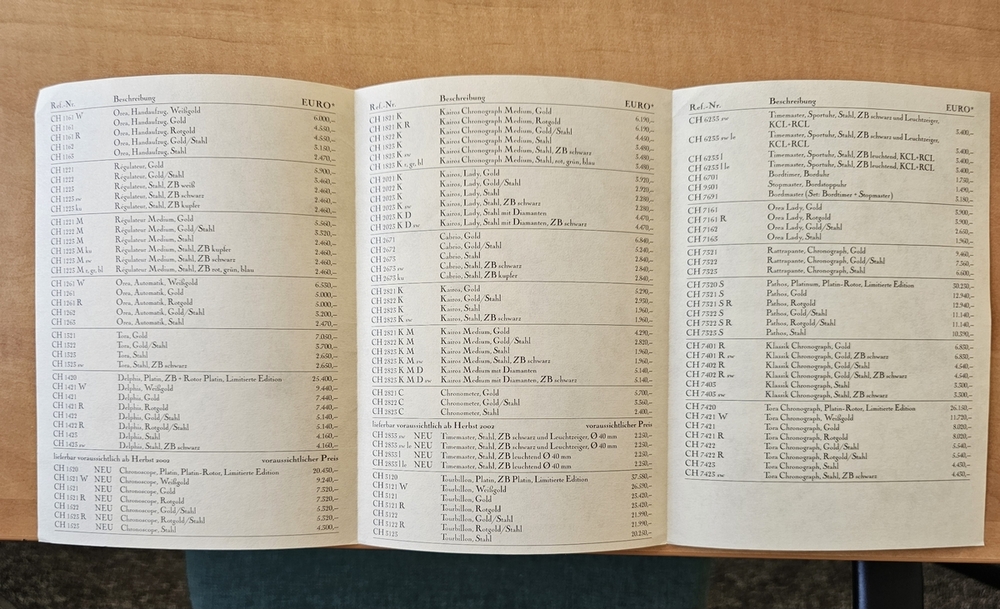 Ref.-Nr. Beschreibung EURO*
CH 1161 W Orea, Handaufzug, Weißgold 6.000,–
CH 1161 Orea, Handaufzug, Gold 4.550,–
CH 1161 R Orea, Handaufzug, Rotgold 4.550,–
CH 1162 Orea, Handaufzug, Gold/Stahl 3.150,–
CH 1163 Orea, Handaufzug, Stahl 2.470,–
CH 1221 Régulateur, Gold 5.900,–
CH 1222 Régulateur, Gold/Stahl 3.460,–
CH 1223 Régulateur, Stahl, ZB weiß 2.460,–
CH 1223 sw Régulateur, Stahl, ZB schwarz 2.460,–
CH 1223 ku Régulateur, Stahl, ZB kupfer 2.460,–
CH 1221 M Régulateur Medium, Gold 5.560,–
CH 1222 M Régulateur Medium, Gold/Stahl 3.320,–
CH 1223 M Régulateur Medium, Stahl 2.460,–
CH 1223 M ku Régulateur Medium, Stahl, ZB kupfer 2.460,–
CH 1223 M sw Régulateur Medium, Stahl, ZB schwarz 2.460,–
CH 1223 M r, gr, bl Régulateur Medium, Stahl, ZB rot, grün, blau 2.460,–
CH 1261 W Orea, Automatik, Weißgold 6.550,–
CH 1261 Orea, Automatik, Gold 5.000,–
CH 1261 R Orea, Automatik, Rotgold 5.000,–
CH 1262 Orea, Automatik, Gold/Stahl 3.200,–
CH 1263 Orea, Automatik, Stahl 2.470,–
CH 1321 Tora, Gold 7.050,–
CH 1322 Tora, Gold/Stahl 3.700,–
CH 1323 Tora, Stahl 2.650,–
CH 1323 sw Tora, Stahl, ZB schwarz 2.650,–
CH 1420 Delphis, Platin, ZB + Rotor Platin, Limitierte Edition 25.400,–
CH 1421 W Delphis, Weißgold 9.440,–
CH 1421 Delphis, Gold 7.440,–
CH 1421 R Delphis, Rotgold 7.440,–
CH 1422 Delphis, Gold/Stahl 5.140,–
CH 1422 R Delphis, Rotgold/Stahl 5.140,–
CH 1423 Delphis, Stahl 4.160,–
CH 1423 sw Delphis, Stahl, ZB schwarz 4.160,–
lieferbar voraussichtlich ab Herbst 2002 voraussichtlicher Preis
CH 1520 NEU Chronoscope, Platin, Platin-Rotor, Limitierte Edition 20.450,–
CH 1521 W NEU Chronoscope, Weißgold 9.240,–
CH 1521 NEU Chronoscope, Gold 7.320,–
CH 1521 R NEU Chronoscope, Rotgold 7.320,–
CH 1522 NEU Chronoscope, Gold/Stahl 5.320,–
CH 1522 R NEU Chronoscope, Rotgold/Stahl 5.320,–
CH 1523 NEU Chronoscope, Stahl 4.300,–
Ref.-Nr. Beschreibung EURO*
CH 1821 K Kairos Chronograph Medium, Gold 6.190,–
CH 1821 K R Kairos Chronograph Medium, Rotgold 6.190,–
CH 1822 K Kairos Chronograph Medium, Gold/Stahl 4.450,–
CH 1823 K Kairos Chronograph Medium, Stahl 3.480,–
CH 1823 K sw Kairos Chronograph Medium, Stahl, ZB schwarz 3.480,–
CH 1823 K r, gr, bl Kairos Chronograph Medium, Stahl, rot, grün, blau 3.480,–
CH 2021 K Kairos, Lady, Gold 3.920,–
CH 2022 K Kairos, Lady, Gold/Stahl 2.920,–
CH 2023 K Kairos, Lady, Stahl 2.280,–
CH 2023 K sw Kairos, Lady, Stahl, ZB schwarz 2.280,–
CH 2023 K D Kairos, Lady, Stahl mit Diamanten 4.470,–
CH 2023 K D sw Kairos, Lady, Stahl mit Diamanten, ZB schwarz 4.470,–
CH 2671 Cabrio, Gold 6.840,–
CH 2672 Cabrio, Gold/Stahl 5.240,–
CH 2673 Cabrio, Stahl 2.840,–
CH 2673 sw Cabrio, Stahl, ZB schwarz 2.840,–
CH 2673 ku Cabrio, Stahl, ZB kupfer 2.840,–
CH 2821 K Kairos, Gold 5.290,–
CH 2822 K Kairos, Gold/Stahl 2.950,–
CH 2823 K Kairos, Stahl 1.960,–
CH 2823 K sw Kairos, Stahl, ZB schwarz 1.960,–
CH 2821 K M Kairos Medium, Gold 4.290,–
CH 2822 K M Kairos Medium, Gold/Stahl 2.820,–
CH 2823 K M Kairos Medium, Stahl 1.960,–
CH 2823 K M sw Kairos Medium, Stahl, ZB schwarz 1.960,–
CH 2823 K M D Kairos Medium mit Diamanten 5.140,–
CH 2823 K M D sw Kairos Medium mit Diamanten, ZB schwarz 5.140,–
CH 2821 C Chronometer, Gold 5.700,–
CH 2822 C Chronometer, Gold/Stahl 3.360,–
CH 2823 C Chronometer, Stahl 2.400,–
lieferbar voraussichtlich ab Herbst 2002 voraussichtlicher Preis
CH 2833 sw NEU Timemaster, Stahl, ZB schwarz und Leuchtzeiger, Ø 40 mm 2.250,–
CH 2833 sw le NEU Timemaster, Stahl, ZB schwarz und Leuchtzeiger, Ø 40 mm 2.250,–
CH 2833 l NEU Timemaster, Stahl, ZB leuchtend Ø 40 mm 2.250,–
CH 2833 l le NEU Timemaster, Stahl, ZB leuchtend Ø 40 mm 2.250,–
CH 3120 Tourbillon, Platin, ZB Platin, Limitierte Edition 37.580,–
CH 3121 W Tourbillon, Weißgold 26.590,–
CH 3121 Tourbillon, Gold 25.420,–
CH 3121 R Tourbillon, Rotgold 25.420,–
CH 3122 Tourbillon, Gold/Stahl 21.990,–
CH 3122 R Tourbillon, Rotgold/Stahl 21.990,–
CH 3123 Tourbillon, Stahl 20.250,–
Ref.-Nr. Beschreibung EURO*
CH 6233 sw Timemaster, Sportuhr, Stahl, ZB schwarz und Leuchtzeiger,
KCL-RCL 3.400,–
CH 6233 sw le Timemaster, Sportuhr, Stahl, ZB schwarz und Leuchtzeiger,
KCL-RCL 3.400,–
CH 6233 l Timemaster, Sportuhr, Stahl, ZB leuchtend, KCL-RCL 3.400,–
CH 6233 l le Timemaster, Sportuhr, Stahl, ZB leuchtend, KCL-RCL 3.400,–
CH 6701 Bordtimer, Borduhr 1.750,–
CH 9501 Stopmaster, Bordstoppuhr 1.490,–
CH 7691 Bordmaster (Set: Bordtimer + Stopmaster) 3.180,–
CH 7161 Orea Lady, Gold 3.900,–
CH 7161 R Orea Lady, Rotgold 3.900,–
CH 7162 Orea Lady, Gold/Stahl 2.650,–
CH 7163 Orea Lady, Stahl 1.960,–
CH 7321 Rattrapante, Chronograph, Gold 9.460,–
CH 7322 Rattrapante, Chronograph, Gold/Stahl 7.560,–
CH 7323 Rattrapante, Chronograph, Stahl 6.600,–
CH 7320 S Pathos, Platinum, Platin-Rotor, Limitierte Edition 30.250,–
CH 7321 S Pathos, Gold 12.940,–
CH 7321 S R Pathos, Rotgold 12.940,–
CH 7322 S Pathos, Gold/Stahl 11.140,–
CH 7322 S R Pathos, Rotgold/Stahl 11.140,–
CH 7323 S Pathos, Stahl 10.290,–
CH 7401 R Klassik Chronograph, Gold 6.850,–
CH 7401 R sw Klassik Chronograph, Gold, ZB schwarz 6.850,–
CH 7402 R Klassik Chronograph, Gold/Stahl 4.540,–
CH 7402 R sw Klassik Chronograph, Gold/Stahl, ZB schwarz 4.540,–
CH 7403 Klassik Chronograph, Stahl 3.300,–
CH 7403 sw Klassik Chronograph, Stahl, ZB schwarz 3.300,–
CH 7420 Tora Chronograph, Platin-Rotor, Limitierte Edition 26.150,–
CH 7421 W Tora Chronograph, Weißgold 11.720,–
CH 7421 Tora Chronograph, Gold 8.020,–
CH 7421 R Tora Chronograph, Rotgold 8.020,–
CH 7422 Tora Chronograph, Gold/Stahl 5.540,–
CH 7422 R Tora Chronograph, Rotgold/Stahl 5.540,–
CH 7423 Tora Chronograph, Stahl 4.430,–
CH 7423 sw Tora Chronograph, Stahl, ZB schwarz 4.430,–